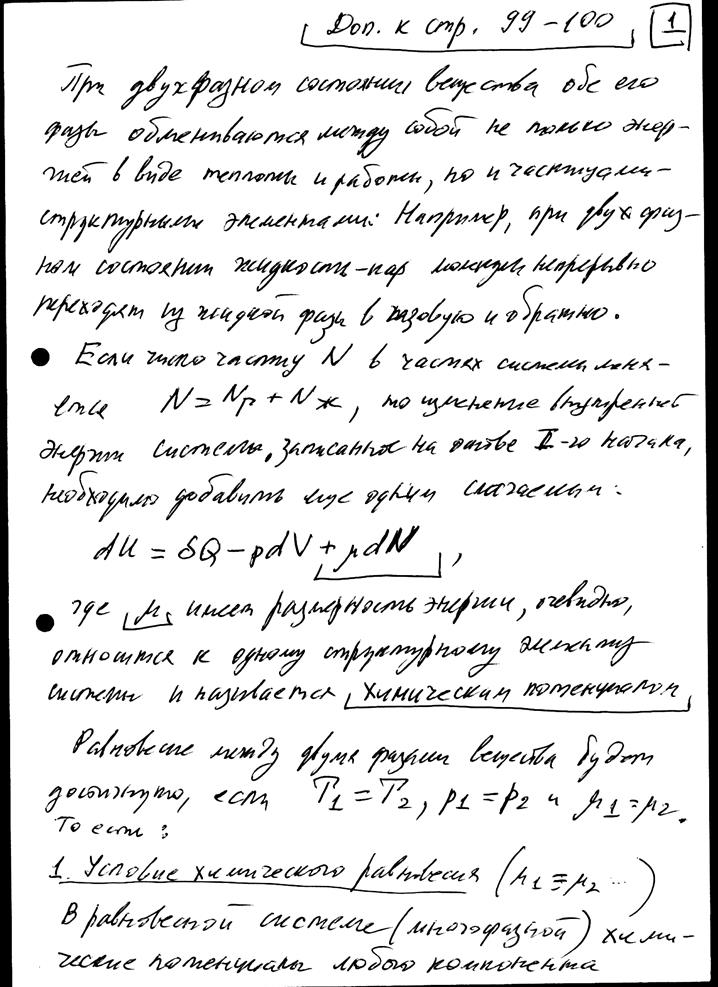 Доп. к стр. 99-100 1
При двухфазном состоянии вещества обе его
фазы обмениваются между собой не только энер-
гией в виде теплоты и работы, но и частицами-
структурными элементами. Например, при двухфаз-
ном состоянии жидкость-пар молекулы непрерывно
переходят из жидкой фазы в газовую и обратно.
• Если число частиц N в частях системы меня-
ется N = Nг + Nж, то изменение внутренней
энергии системы, записанное на основе II-го начала,
необходимо добавить еще одним слагаемым:
dU = δQ - pdV + μdN,
• где μ имеет размерность энергии, очевидно,
относится к одному структурному элементу
системы и называется химическим потенциалом
Равновесие между двумя фазами вещества будет
достигнуто, если T1 = T2, p1 = p2 и μ1 = μ2.
То есть:
1. Условие химического равновесия (μ1 = μ2 ...)
В равновесной системе (многофазной) хими-
ческие потенциалы любого компонента